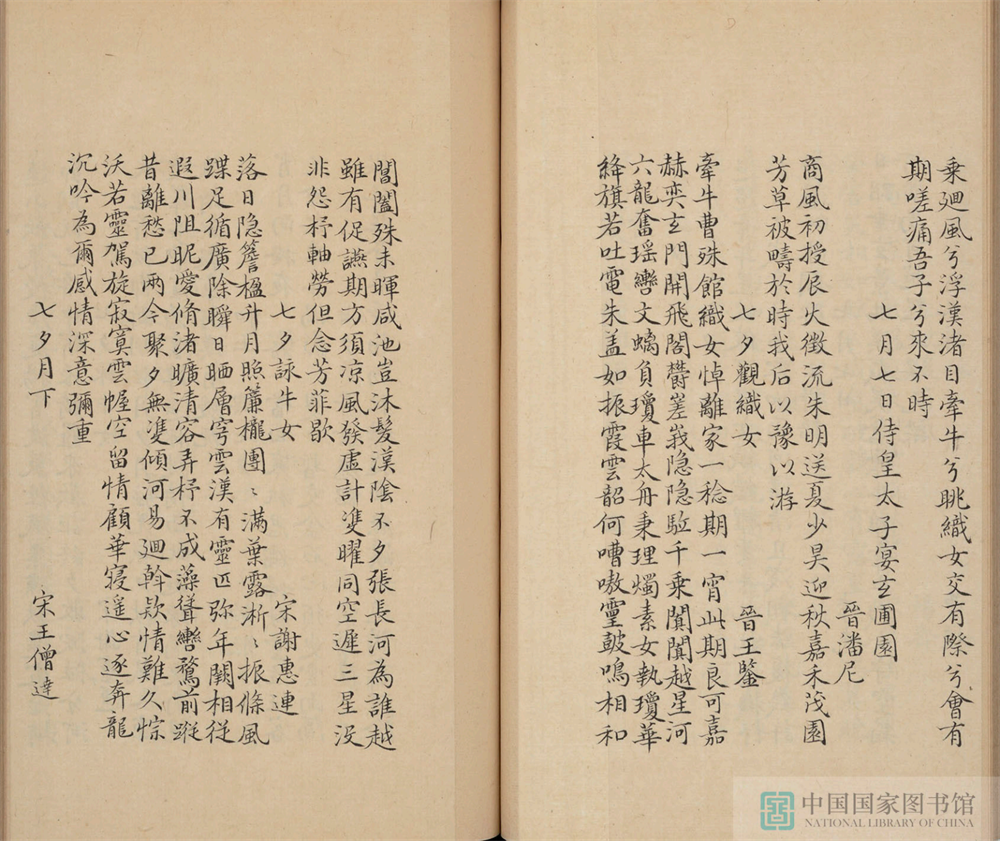 乘廻風兮浮漢渚目牽牛兮眺織女交有際兮會有
期嗟痛吾子兮來不時
七月七日侍皇太子宴玄圃園
晉潘尼
商風初授辰火徴流朱明送夏少昊迎秋嘉禾茂園
芳草被疇於時我后以豫以游
七夕觀織女
晉王鑒
牽牛曹殊館織女悼離家一稔期一宵此期良可嘉
赫奕玄門開飛閣欝嵳峩隐隐駈千乗闐闐越星河
六龍奮瑶轡文螭負瓊車太舟秉理燭素女執瓊華
絳旗若吐電朱盖如振霞雲韶何嘈嗷靈皷鳴相和
閶闔殊未暉咸池豈沐髮漢陰不夕張長河為誰越
雖有促讌期方須凉風發虚計䨇曜同空遲三星没
非怨杼軸勞但念芳菲歇
七夕詠牛女
宋謝惠連
落日隐簷楹升月照簾櫳團〻滿葉露淅〻振條風
蹀足循廣除瞬目晒層穹雲漢有靈匹弥年闕相従
遐川阻昵愛脩渚曠清容弄杼不成藻聳轡騖前蹤
昔離愁已兩今聚夕無䨇傾河易廻斡欵情難久悰
沃若靈駕旋寂寞雲幄空留情顧華寝遥心逐奔龍
沉吟為爾感情深意彌重
七夕月下
宋王僧達
中国国家图书馆
NATIONAL LIBRARY OF CHINA